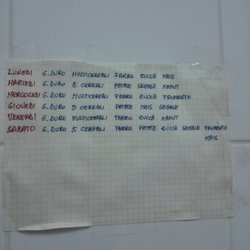 LUNEDI G.DURO MULTICEREALI FARRO ZUCCA MAIS
MARTEDI G.DURO 5 CEREALI PATATE SEGALE KAMUT
MERCOLEDI G.DURO MULTICEREALI FARRO ZUCCA FROMENTO
GIOVEDI G.DURO 5 CEREALI PATATE MAIS SEGALE
VENERDI G.DURO MULTICEREALI FARRO ZUCCA KAMUT
SABATO G.DURO 5 CEREALI FARRO PATATE ZUCCA SEGALE FROMENTO
MAIS